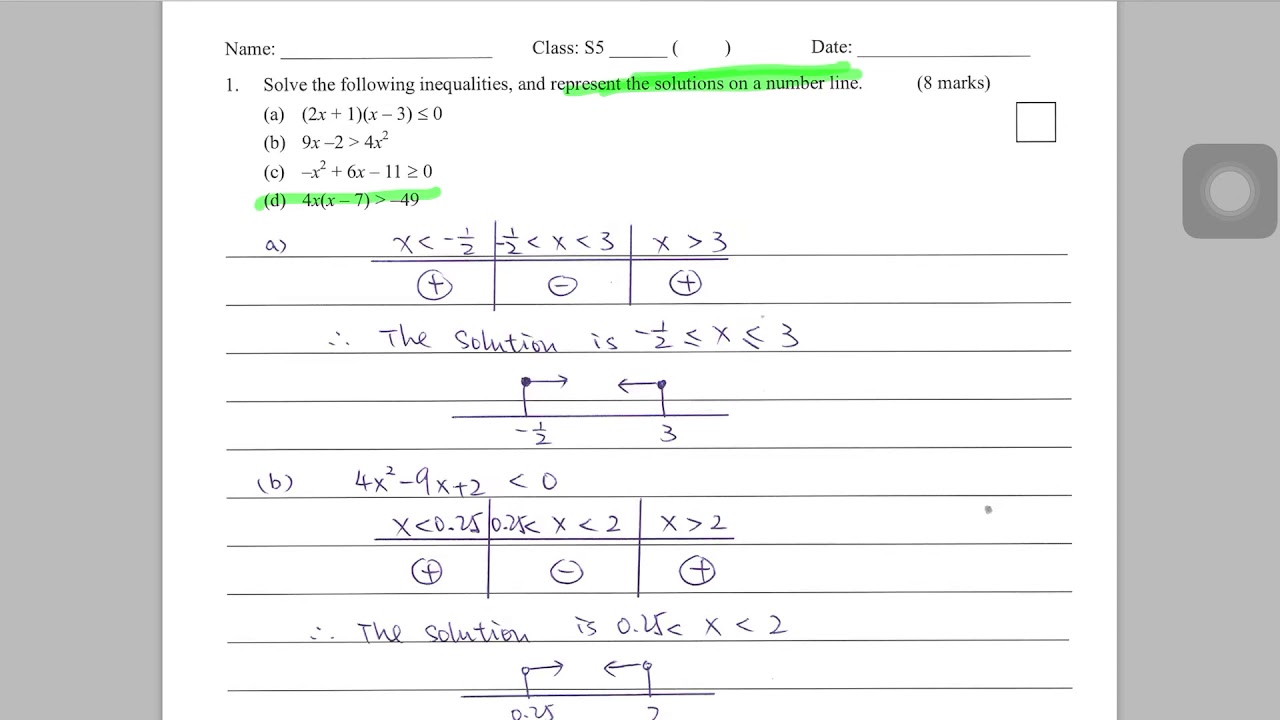 Name: ________ Class: S5 ______ ( ) Date: ________
1. Solve the following inequalities, and represent the solutions on a number line. (8 marks)
(a) (2x + 1)(x – 3) ≤ 0
(b) 9x –2 > 4x²
(c) –x² + 6x – 11 ≥ 0
(d) 4x(x – 7) > –49
a) x < -1/2 | -1/2 < x < 3 | x > 3
+ | - | +
∴ The solution is -1/2 ≤ x ≤ 3
-1/2 3
(b) 4x²-9x+2 < 0
x<0.25 | 0.25< x < 2 | x > 2
+ | - | +
∴ The solution is 0.25< x < 2
0.25 2